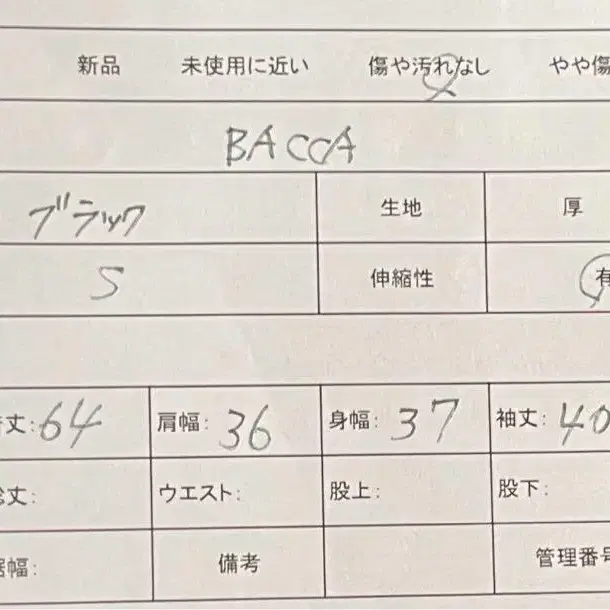 新品 未使用に近い 傷や汚れなし やや傷
BACCA
ブラック 生地 厚
S 伸縮性 有
丈:64 肩幅: 36 身幅: 37 袖丈: 40
丈: ウエスト: 股上: 股下:
幅: 備考 管理番号